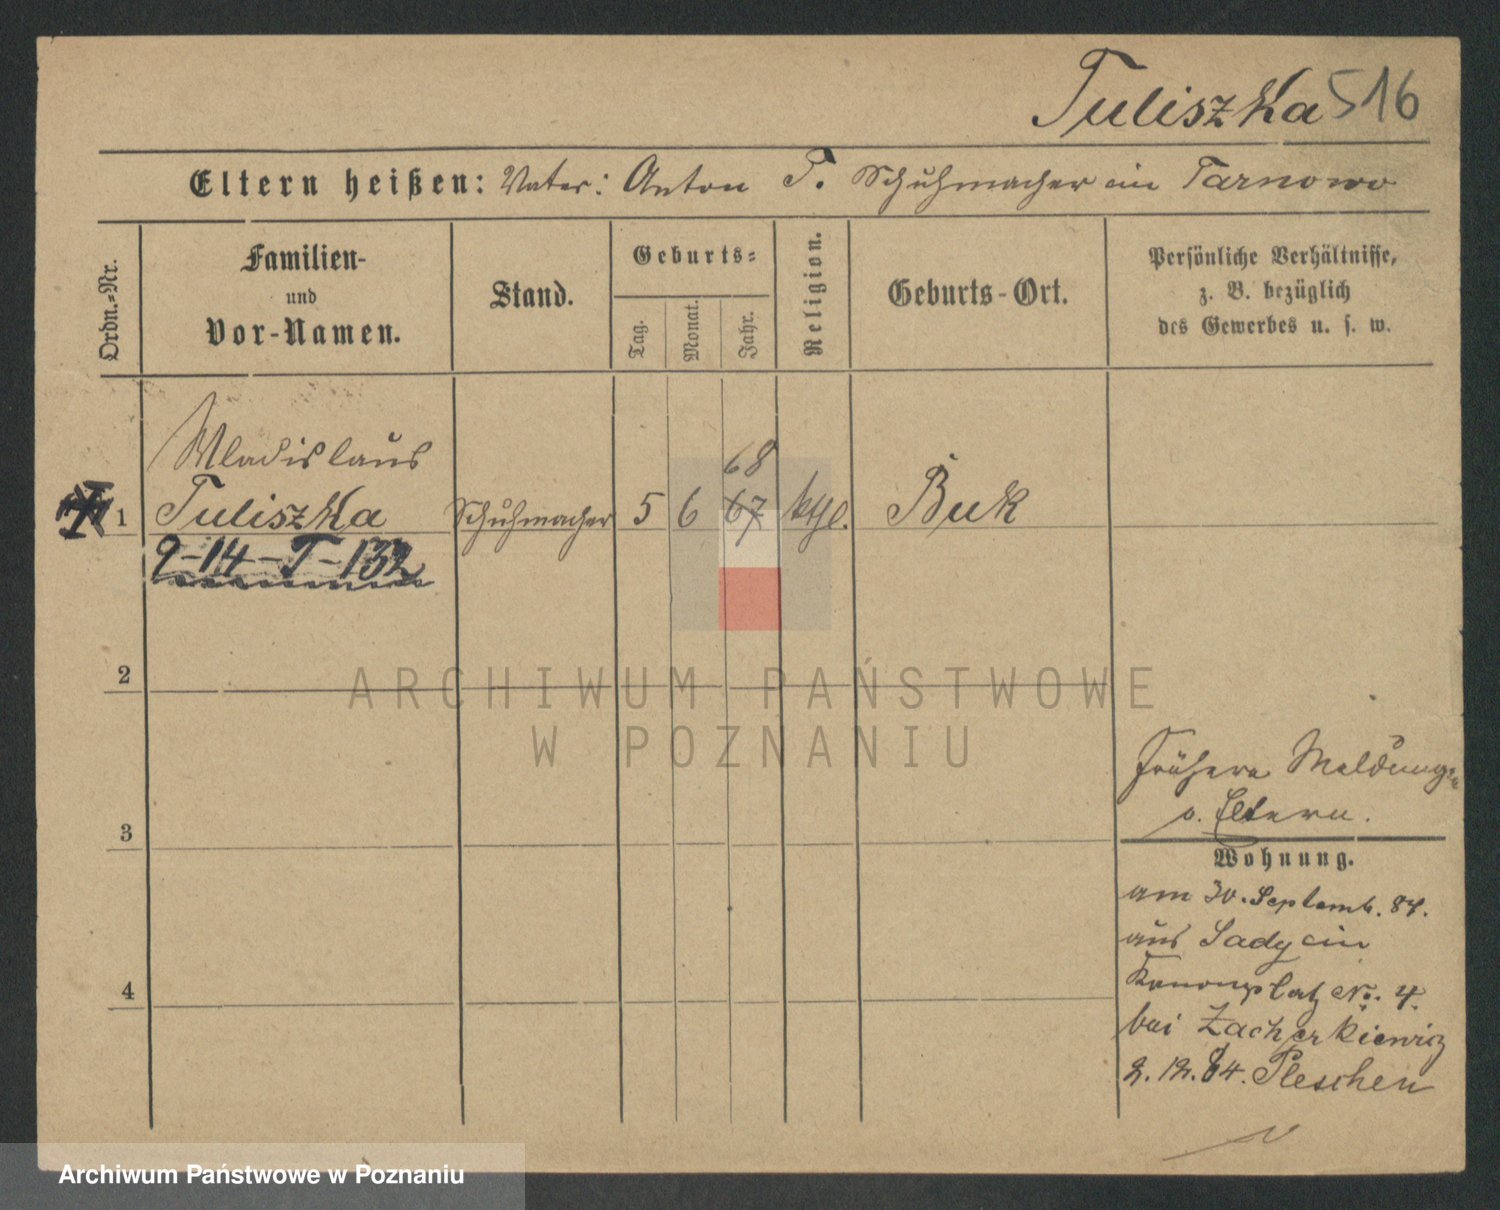 Tuliszka 516
Eltern heißen: Vater: Anton T. Schuhmacher in Tarnowo
Ordn.-Nr.
Familien-
und
Vor-Namen.
Stand.
Geburts-
Tag.
Monat.
Jahr.
Religion.
Geburts-Ort.
Persönliche Verhältnisse,
z. B. bezüglich
des Gewerbes u. s. w.
Wladislaus
68
1 Tuliszka Schuhmacher 5 6 67 kthl. Buk
9-14-T-132
2
ARCHIWUM PAŃSTWOWE
W POZNANIU
Frühere Meldungen
3
s. Eltern.
Wohnung.
am 30. Septemb. 84.
aus Sady ein
4
Kanonenplatz No. 4.
bei Zacherkiewicz
2.12.84. Pleschen
Archiwum Państwowe w Poznaniu